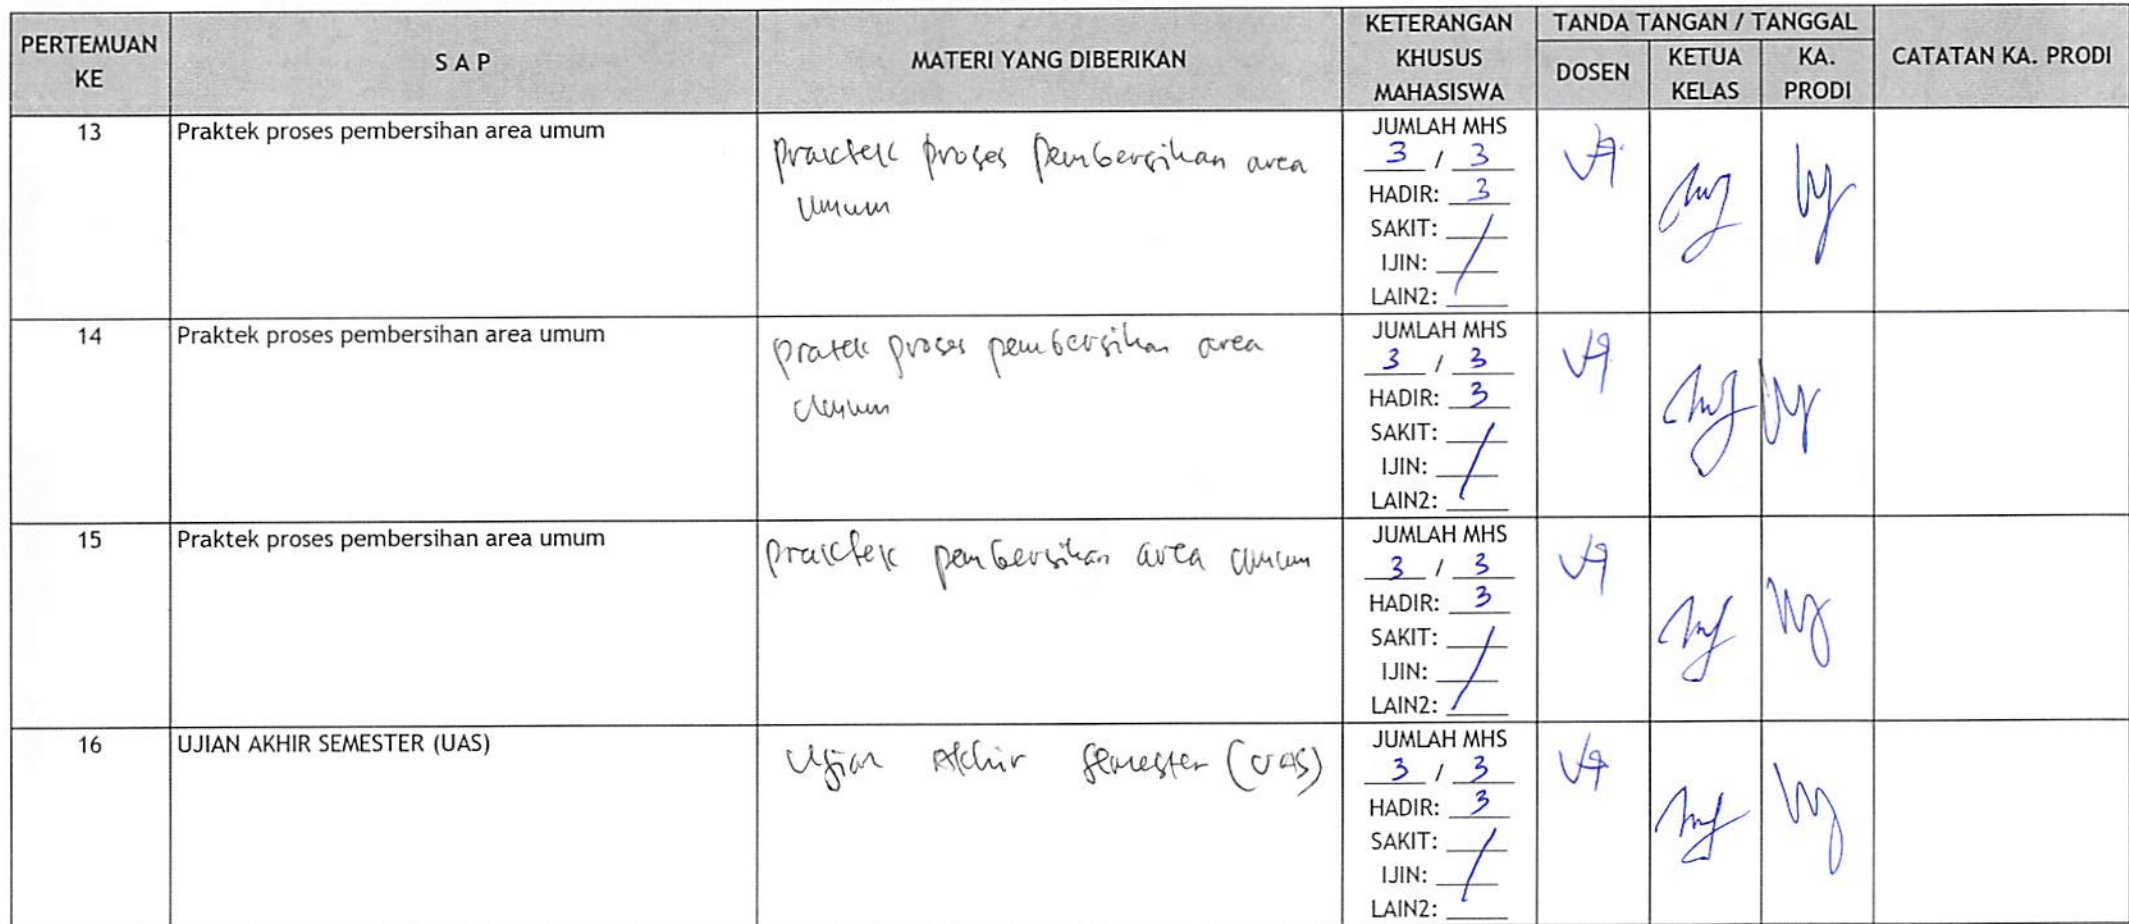 PERTEMUAN KE
S A P
MATERI YANG DIBERIKAN
KETERANGAN KHUSUS MAHASISWA
TANDA TANGAN / TANGGAL
DOSEN
KETUA KELAS
KA. PRODI
CATATAN KA. PRODI
13
Praktek proses pembersihan area umum
Praktek proses pembersihan area
umum
JUMLAH MHS
3 / 3
HADIR: 3
SAKIT:
IJIN:
LAIN2:
14
Praktek proses pembersihan area umum
pratek proses pembersihan area
umum
JUMLAH MHS
3 / 3
HADIR: 3
SAKIT:
IJIN:
LAIN2:
15
Praktek proses pembersihan area umum
praktek pembersihan area umum
JUMLAH MHS
3 / 3
HADIR: 3
SAKIT:
IJIN:
LAIN2:
16
UJIAN AKHIR SEMESTER (UAS)
Ujian Akhir Semester (UAS)
JUMLAH MHS
3 / 3
HADIR: 3
SAKIT:
IJIN:
LAIN2: